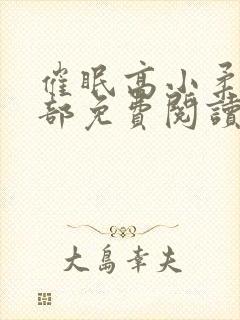 催眠高小柔
部免費閱讀
大島幸夫